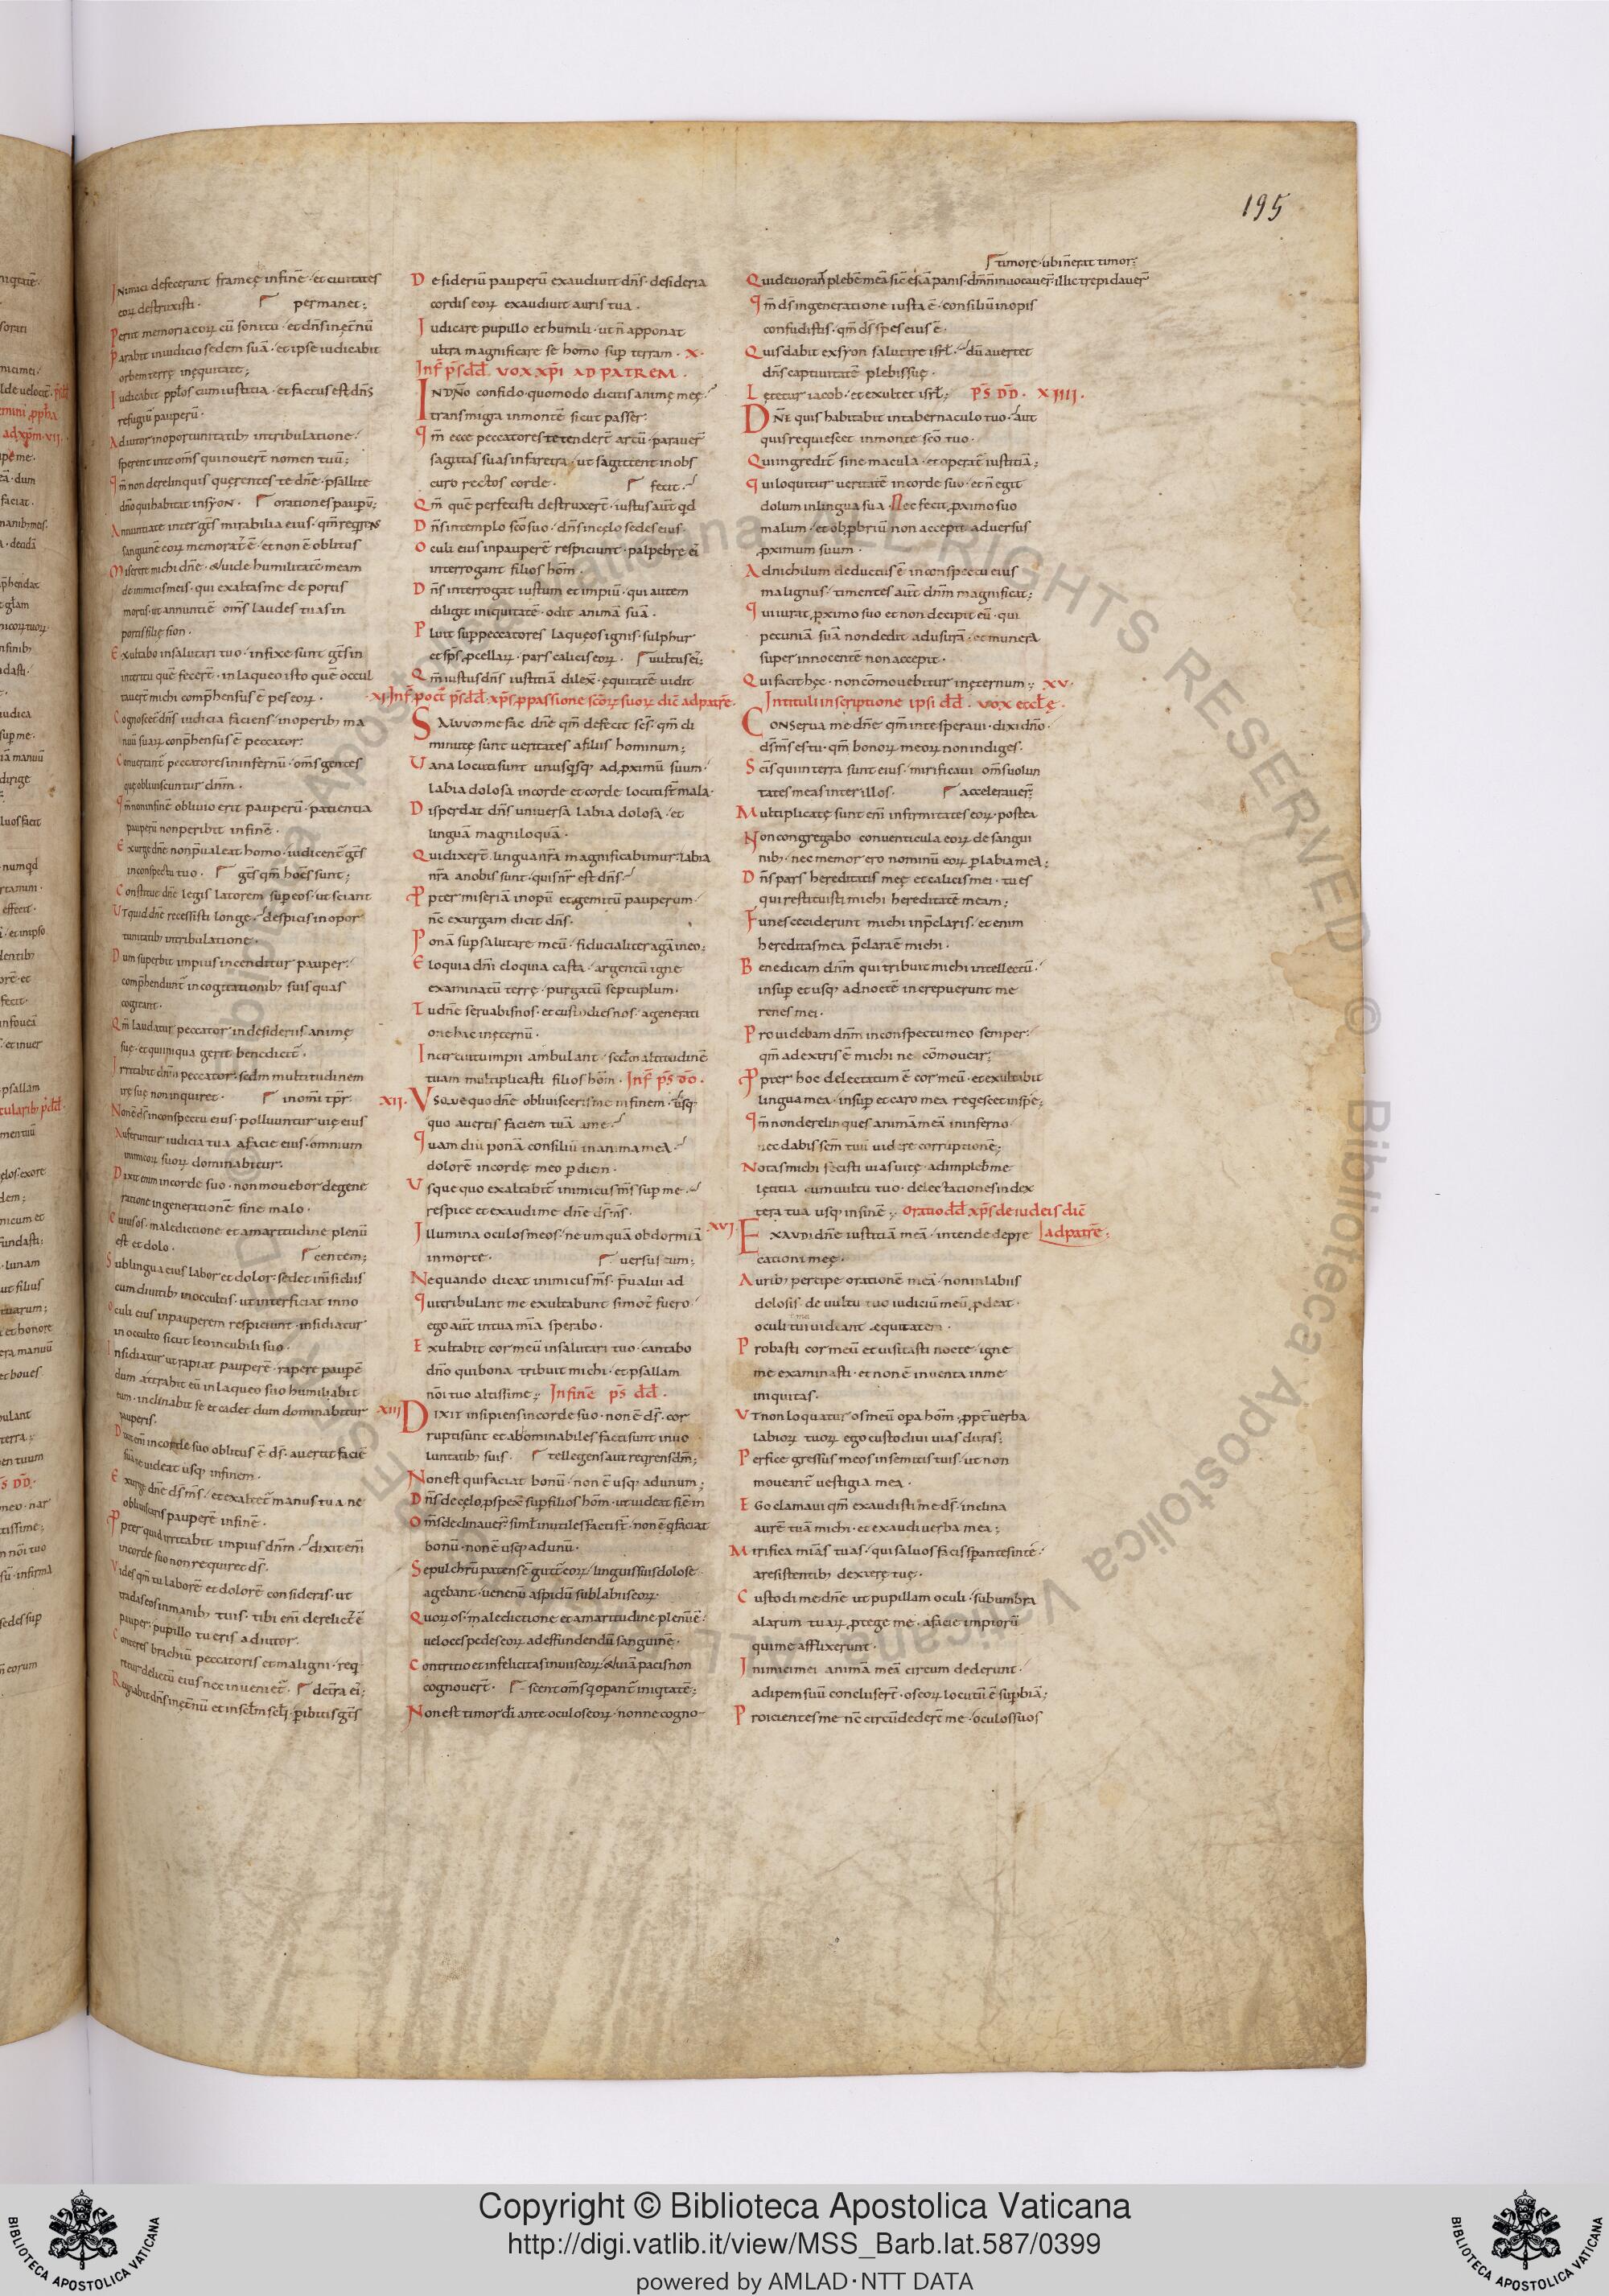 195
Inimici defecerunt framęę infinē · et ciuitates
eoꝝ destruxisti · permanet ;
Perut memoria eoꝝ cū sonitu · et dn̄s inęt̄nū
Parabit iniudicio sedem suā · et ipse iudicabit
orbem terrę inęquitate ;
Iudicabit ppl̄os cum iustitia · et factus est dn̄s
refugiū pauperū ·
Adiutor inoportunitatibꝫ intribulatione ·
sperent inte om̄s qui nouer̄t nomen tuū ;
qm̄ non derelinquis quęrentes te dn̄e · psallite
dn̄o qui habitat insyon · orationes paupū ;
Annuntiate inter gt̄s mirabilia eius · qm̄ reqrens
sanguinē eoꝝ memorat̄ ē · et non ē oblitus
Miserere michi dn̄e · & uide humilitatē meam
de inimicis meis · qui exaltas me de portis
mortis · ut annuntiē om̄s laudes tuas in
portis filię sion ·
Exultabo insalutari tuo · infixe sunt gt̄s in
interitu quē fecer̄t · inlaqueo isto quē occul
tauer̄t michi comp̄hensus ē pes eoꝝ ·
Cognoscet̄ dn̄s iudicia faciens · inoperibꝫ ma
nuū suaꝝ conp̄hensus ē peccator :
Conuertant̄ peccatores ininfernū · om̄s gentes
quę obliuiscuntur dn̄m ·
qm̄ noninfinē obliuio erit pauperū · patientia
pauperū nonperibit infinē ·
Exurge dn̄e nonp̄ualeat homo · iudicent̄ gt̄s
inconspectu tuo · gt̄s qm̄ hoēs sunt ;
Constitue dn̄e legis latorem sup eos · ut sciant
Ut quid dn̄e recessisti longe · despicis inopor
tunitatibꝫ intribulatione ·
Dum superbit impius incenditur pauper ·
comp̄hendunt̄ incogitationibꝫ suis quas
cogitant ·
Qm̄ laudatur peccator indesideriis animę
suę · et qui iniqua gerit benedicit̄ ·
Irritabit dn̄m peccator · sedm multitudinem
irę suę non inquiret · inom̄i tp̄r ·
Nonē ds̄ inconspectu eius · polluuntur uię eius
Auferuntur iudicia tua afacie eius · omnium
inimicoꝝ suoꝝ dominabitur ·
Dixit enim incorde suo · non mouebor degene
ratione ingenerationē sine malo ·
Cuius os · maledictione et amaritudine plenū
est et dolo · centem ;
Sub lingua eius labor et dolor · sedet in̄sidiis
cum diuitibꝫ inoccultis · ut interficiat inno
Oculi eius inpauperem respiciunt · insidiatur
in occulto sicut leo incubili suo ·
Insidiatur ut rapiat pauperē · rapere paupē
dum attrahit eū inlaqueo suo humiliabit
eum · inclinabit se et cadet dum dominabitur
pauperis ·
Dixit eni incorde suo oblitus ē ds̄ · auertit faciē
suā ne uideat usqꝫ infinem ·
Exurge dn̄e ds̄ m̄s · et exaltet̄ manus tua ne
obliuiscaris pauperē infinē ·
Ppter quid irritabit impius dn̄m · dixit eni
incorde suo non requiret ds̄ ·
Uides qm̄ tu laborē et dolorē consideras · ut
tradas eos inmanibꝫ tuis · tibi eni derelict̄ ē
pauper · pupillo tu eris adiutor ·
Conteres brachiū peccatoris et maligni · req
ritur delictū eius nec inueniet̄ · de tr̄a ei ;
Regnabit dn̄s inęt̄nū et insēlm sēli · pibitis gt̄s
Desideriū pauperū exaudiuit dn̄s · desideria
cordis eoꝝ exaudiuit auris tua ·
Iudicare pupillo et humili · ut n̄ apponat
ultra magnificare se homo sup terram · X ·
Inf̄ p̄s dd̄ · VOX XP̄I AD PATREM ·
IN DN̄O confido · quomodo dicitis animę męę ·
transmigra inmontē sicut passer :
qm̄ ecce peccatores tetender̄t arcū · parauer̄
sagittas suas infaretra · ut sagittent inobs
curo rectos corde · fecit ·
Qm̄ quē perfecisti destruxer̄t · iustus aut̄ qd
Dn̄s intemplo sc̄o suo · dn̄s incęlo sedes eius
Oculi eius inpauperē respiciunt · palpebre ei
interrogant filios hom̄ ·
Dn̄s interrogat iustum et impiū · qui autem
diligit iniquitatē · odit animā suā ·
Pluit sup peccatores laqueos ignis · sulphur
et sp̄s pcellaꝝ · pars calicis eoꝝ · uultus ei ;
Qm̄ iustus dn̄s iustitiā dilex̄ · ęquitatē uidit
XI · Inf̄ p oct̄ p̄s dd̄ · xp̄s p passione sc̄oꝝ suoꝝ dic̄ ad patrē ·
SALUUM me fac dn̄e qm̄ defecit sc̄s · qm̄ di
minutę sunt ueritates afiliis hominum ;
Uana locuti sunt unusqsqꝫ ad pximū suum ·
labia dolosa incorde et corde locuti st̄ mala ·
Disperdat dn̄s uniuersa labia dolosa · et
linguā magniloquā ·
Qui dixer̄t · linguā nr̄a magnificabimus · labia
nr̄a anobis sunt · quis nr̄ est dn̄s ·
Ppter miseriā inopū et gemitū pauperum ·
nc̄ exurgam dicit dn̄s ·
Ponā sup salutare meū · fiducialiter agā ineo ;
Eloquia dn̄i eloquia casta · argentū igne
examinatū terrę · purgatū septuplum ·
Tu dn̄e seruabis nos · et custodies nos · agenerati
one hac inęternū ·
Incircuitu impii ambulant · sedm̄ altitudinē
tuam multiplicasti filios hom̄ · Inf̄ p̄s dd̄ ·
XII · VSQUEQUO dn̄e obliuisceris me infinem · usq
quo auertis faciem tuā ame ·
Quam diu ponā consiliū inanima mea ·
dolorē incorde meo p diem ·
Usque quo exaltabit̄ inimicus m̄s sup me ·
respice et exaudi me dn̄e ds̄ m̄s ·
Illumina oculos meos · ne umquā obdormiā
inmorte · uersus eum ;
Nequando dicat inimicus m̄s · p̄ualui ad
Qui tribulant me exultabunt si mot̄ fuero ·
ego aut̄ intua mīa sperabo ·
Exultabit cor meū insalutari tuo · cantabo
dn̄o qui bona tribuit michi · et psallam
nōi tuo altissime ; Infinē p̄s dd̄ ·
XIII DIXIT insipiens incorde suo · non ē ds̄ · cor
rupti sunt et abominabiles facti sunt inuo
luntatibꝫ suis · tellegens aut reqrens dm̄ ;
Non est qui faciat bonū · non ē usqꝫ adunum ;
Dn̄s de cęlo pspex̄ sup filios hom̄ · ut uideat si ē in
Om̄s declinauer̄ · siml̄ inutiles facti st̄ · non ē q faciat
bonū · non ē usqꝫ adunū ·
Sepulchrū patens ē gutt̄ eoꝝ · linguis suis dolose
agebant · uenenū aspidū sub labiis eoꝝ ·
Quoꝝ os · maledictione et amaritudine plenū ē ·
ueloces pedes eoꝝ ad effundendū sanguinē ·
Contritio et infelicitas inuiis eoꝝ · & uiā pacis non
cognouer̄t · scent om̄s q opant̄ iniqtatē ;
Non est timor di ante oculos eoꝝ · nonne cogno
timore · ubi n̄ erat timor ;
Qui deuorant plebē meā sic̄ escā panis · dm̄ n̄ inuocauer̄ · illic trepidauer̄
qm̄ ds̄ ingeneratione iusta ē · consiliū inopis
confudistis · qm̄ ds̄ spes eius ē ·
Quis dabit exsyon salutare isrl̄ · dū auertet
dn̄s captiuitatē plebis suę ·
Lętetur iacob · et exultet isrl̄ ; P̄S DD̄ · XIIII ·
DN̄E quis habitabit intabernaculo tuo · aut
quis requiescet inmonte sc̄o tuo ·
Qui ingredit̄ sine macula · et operat̄ iustitiā ;
qui loquitur ueritatē incorde suo · et n̄ egit
dolum inlingua sua · Nec fecit pximo suo
malum · et obpbriū non accepit aduersus
pximum suum ·
Adnichilum deductus ē inconspectu eius
malignus · timentes aut̄ dn̄m magnificat ;
qui iurat pximo suo et non decipit eū · qui
pecuniā suā non dedit ad usurā · et munera
super innocentē non accepit ·
Qui facit hęc · non cōmouebitur inęternum ; XV ·
Intituli inscriptione ipsi dd̄ · uox eccl̄ę ·
CONSERUA me dn̄e qm̄ inte speraui · dixi dn̄o ·
ds̄ m̄s es tu · qm̄ bonoꝝ meoꝝ non indiges ·
Scīs qui interra sunt eius · mirificaui om̄s uolun
tates meas inter illos · accelerauer̄ ;
Multiplicatę sunt eni infirmitates eoꝝ · postea
Non congregabo conuenticula eoꝝ de sangui
nibꝫ · nec memor ero nominū eoꝝ p labia mea ;
Dn̄s pars hereditatis męę et calicis mei · tu es
qui restituisti michi hereditatē meam ;
Funes ceciderunt michi inp̄claris · et enim
hereditas mea p̄clara ē michi ·
Benedicam dn̄m qui tribuit michi intellectū ·
insup et usqꝫ ad noctē increpuerunt me
renes mei ·
Prouidebam dn̄m inconspectu meo semper ·
qm̄ adextris ē michi ne cōmouear ;
Ppter hoc delectatum ē cor meū · et exultabit
lingua mea · insup et caro mea reqescet inspe ;
qm̄ non derelinques animā meā ininferno ·
nec dabis sc̄m tuū uidere corruptionē ;
Notas michi fecisti uias uitę · adimplebis me
lętitia cum uultu tuo · delectationes index
tera tua usqꝫ infinē ; Oratio dd̄ xp̄s de iudeis dic̄
XVI · EXAUDI dn̄e iustitiā meā · intende depre ad patrē ;
cationi męę ·
Auribꝫ percipe orationē meā · non inlabiis
dolosis · de uultu tuo iudiciū meū pdeat ·
oculi tui uideant equitatem ·
Probasti cor meū et uisitasti nocte · igne
me examinasti · et non ē inuenta inme
iniquitas ·
Ut non loquatur os meū opa hom̄ · ppt̄ uerba
labioꝝ tuoꝝ ego custodiui uias duras ;
Perfice gressus meos insemitis tuis · ut non
moueant̄ uestigia mea ·
Ego clamaui qm̄ exaudisti me ds̄ · inclina
aurē tuā michi · et exaudi uerba mea ;
Mirifica mīas tuas · qui saluos facis sp̄antes inte ·
aresistentibꝫ dexterę tuę ·
Custodi me dn̄e ut pupillam oculi · sub umbra
alarum tuaꝝ ptege me · afacie impioꝝ
qui me afflixerunt ·
Inimici mei animā meā circum dederunt ·
adipem suū concluser̄t · os eoꝝ locutū ē supbiā ;
Proicientes me nc̄ circūdeder̄t me · oculos suos
Copyright © Biblioteca Apostolica Vaticana
http://digi.vatlib.it/view/MSS_Barb.lat.587/0399
powered by AMLAD·NTT DATA